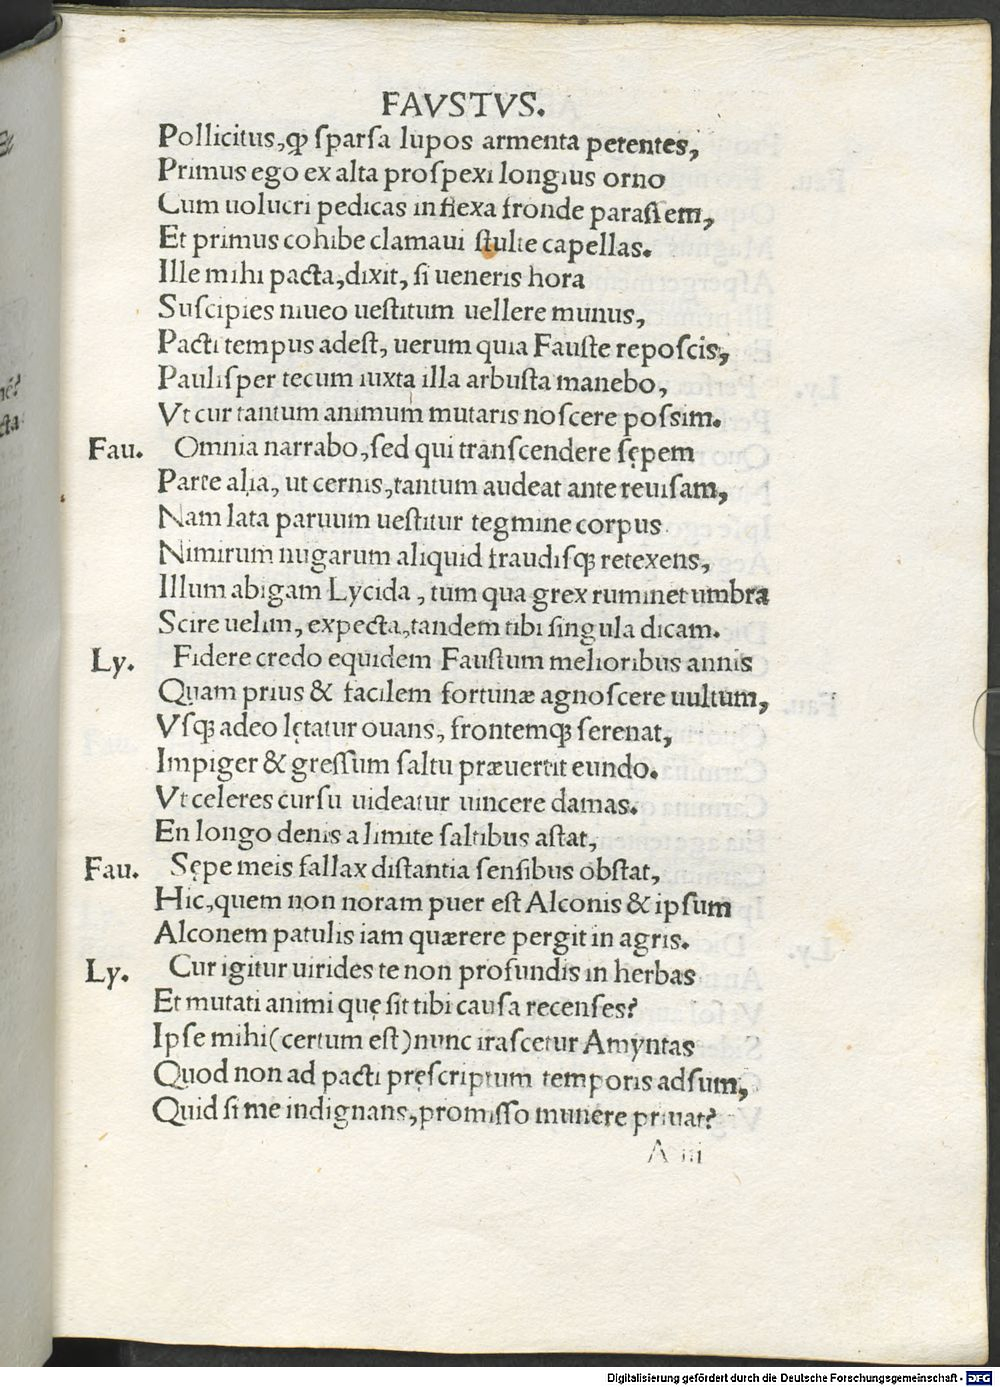 FAVSTVS.
Pollicitus, ꝙ sparsa lupos armenta petentes,
Primus ego ex alta prospexi longius orno
Cum uolucri pedicas inflexa fronde parassem,
Et primus cohibe clamaui stulte capellas.
Ille mihi pacta, dixit, si ueneris hora
Suscipies niueo uestitum uellere munus,
Pacti tempus adest, uerum quia Fauste reposcis,
Paulisper tecum iuxta illa arbusta manebo,
Vt cur tantum animum mutaris noscere possim.
Fau. Omnia narrabo, sed qui transcendere sępem
Parte alia, ut cernis, tantum audeat ante reuisam,
Nam lata paruum uestitur tegmine corpus
Nimirum nugarum aliquid fraudisq; retexens,
Illum abigam Lycida, tum qua grex ruminet umbra
Scire uelim, expecta, tandem tibi singula dicam.
Ly. Fidere credo equidem Faustum melioribus annis
Quam prius & facilem fortunæ agnoscere uultum,
Vsq; adeo lętatur ouans, frontemq; serenat,
Impiger & gressum saltu præuertit eundo.
Vt celeres cursu uideatur uincere damas.
En longo denis a limite saltibus astat,
Fau. Sępe meis fallax distantia sensibus obstat,
Hic, quem non noram puer est Alconis & ipsum
Alconem patulis iam quærere pergit in agris.
Ly. Cur igitur uirides te non profundis in herbas
Et mutati animi quę sit tibi causa recenses?
Ipse mihi (certum est) nunc irascetur Amyntas
Quod non ad pacti pręscriptum temporis adsum,
Quid si me indignans, promisso munere priuat?
A iii
Digitalisierung gefördert durch die Deutsche Forschungsgemeinschaft - DFG